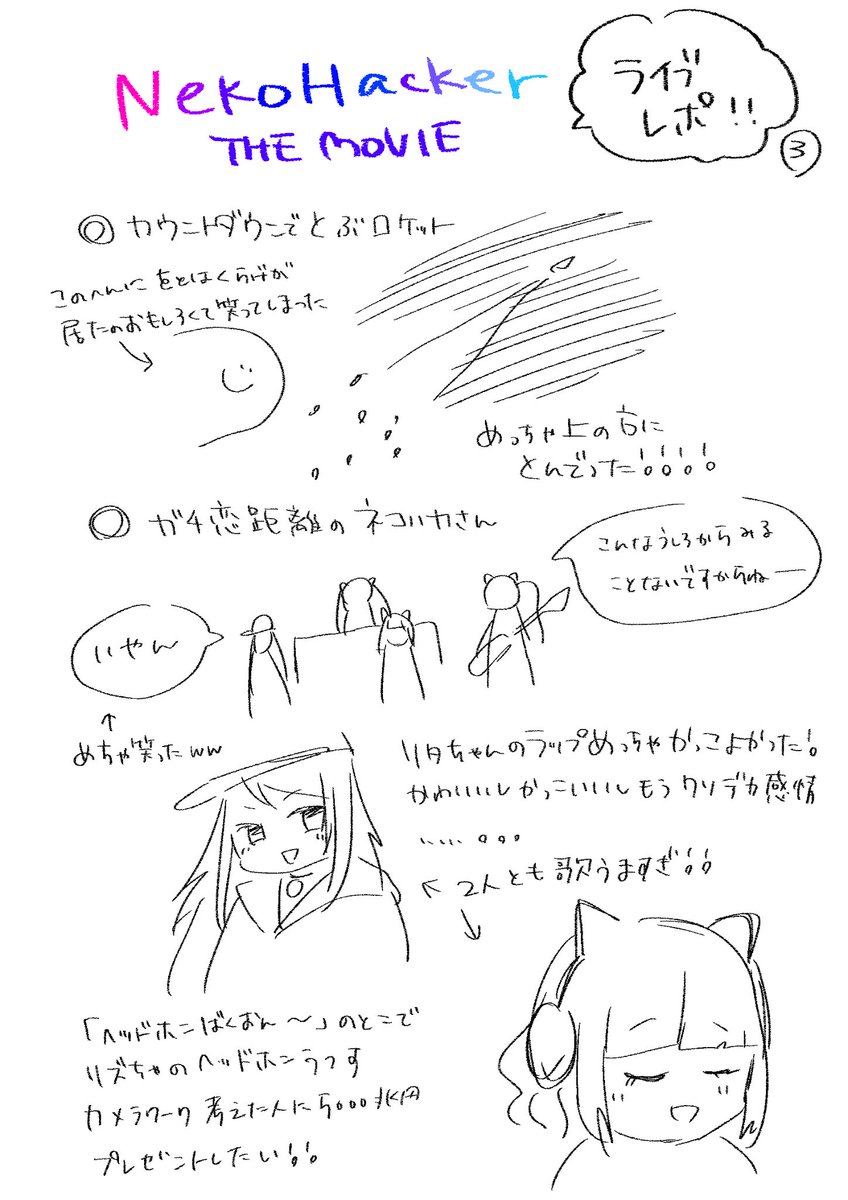 NekoHacker
THE MOVIE
ライブ
レポ!!
3
◎ カウントダウンでとぶロケット
このへんに をとはくらげが
居たのおもしろくて笑ってしまった
めっちゃ上の方に
とんでった!!!!
◎ ガチ恋距離のネコハカさん
こんなうしろからみる
ことないですからねー
いやん
めちゃ笑ったww
リタちゃんのラップめっちゃかっこよかった!
かわいいしかっこいいしもうクソデカ感情
……。。。
2人とも歌うますぎ!!
「ヘッドホンばくおん〜」のとこで
リズちゃのヘッドホンうつす
カメラワーク考えた人に5000兆円
プレゼントしたい!!